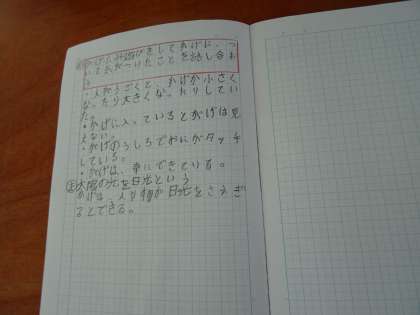 かげふみ遊びをしてかげに、つ
いて気がついたことを話し合お
う。
・人がうごくと、かげが小さく
なったり大きくなったりしてい
た。
・かげに入っているとかげは見
えない。
・かげのうしろでおにがタッチ
している。
・かげは、
にできている。
太陽の光を日光という
かげは、人や物が日光をさえぎ
るとできる。